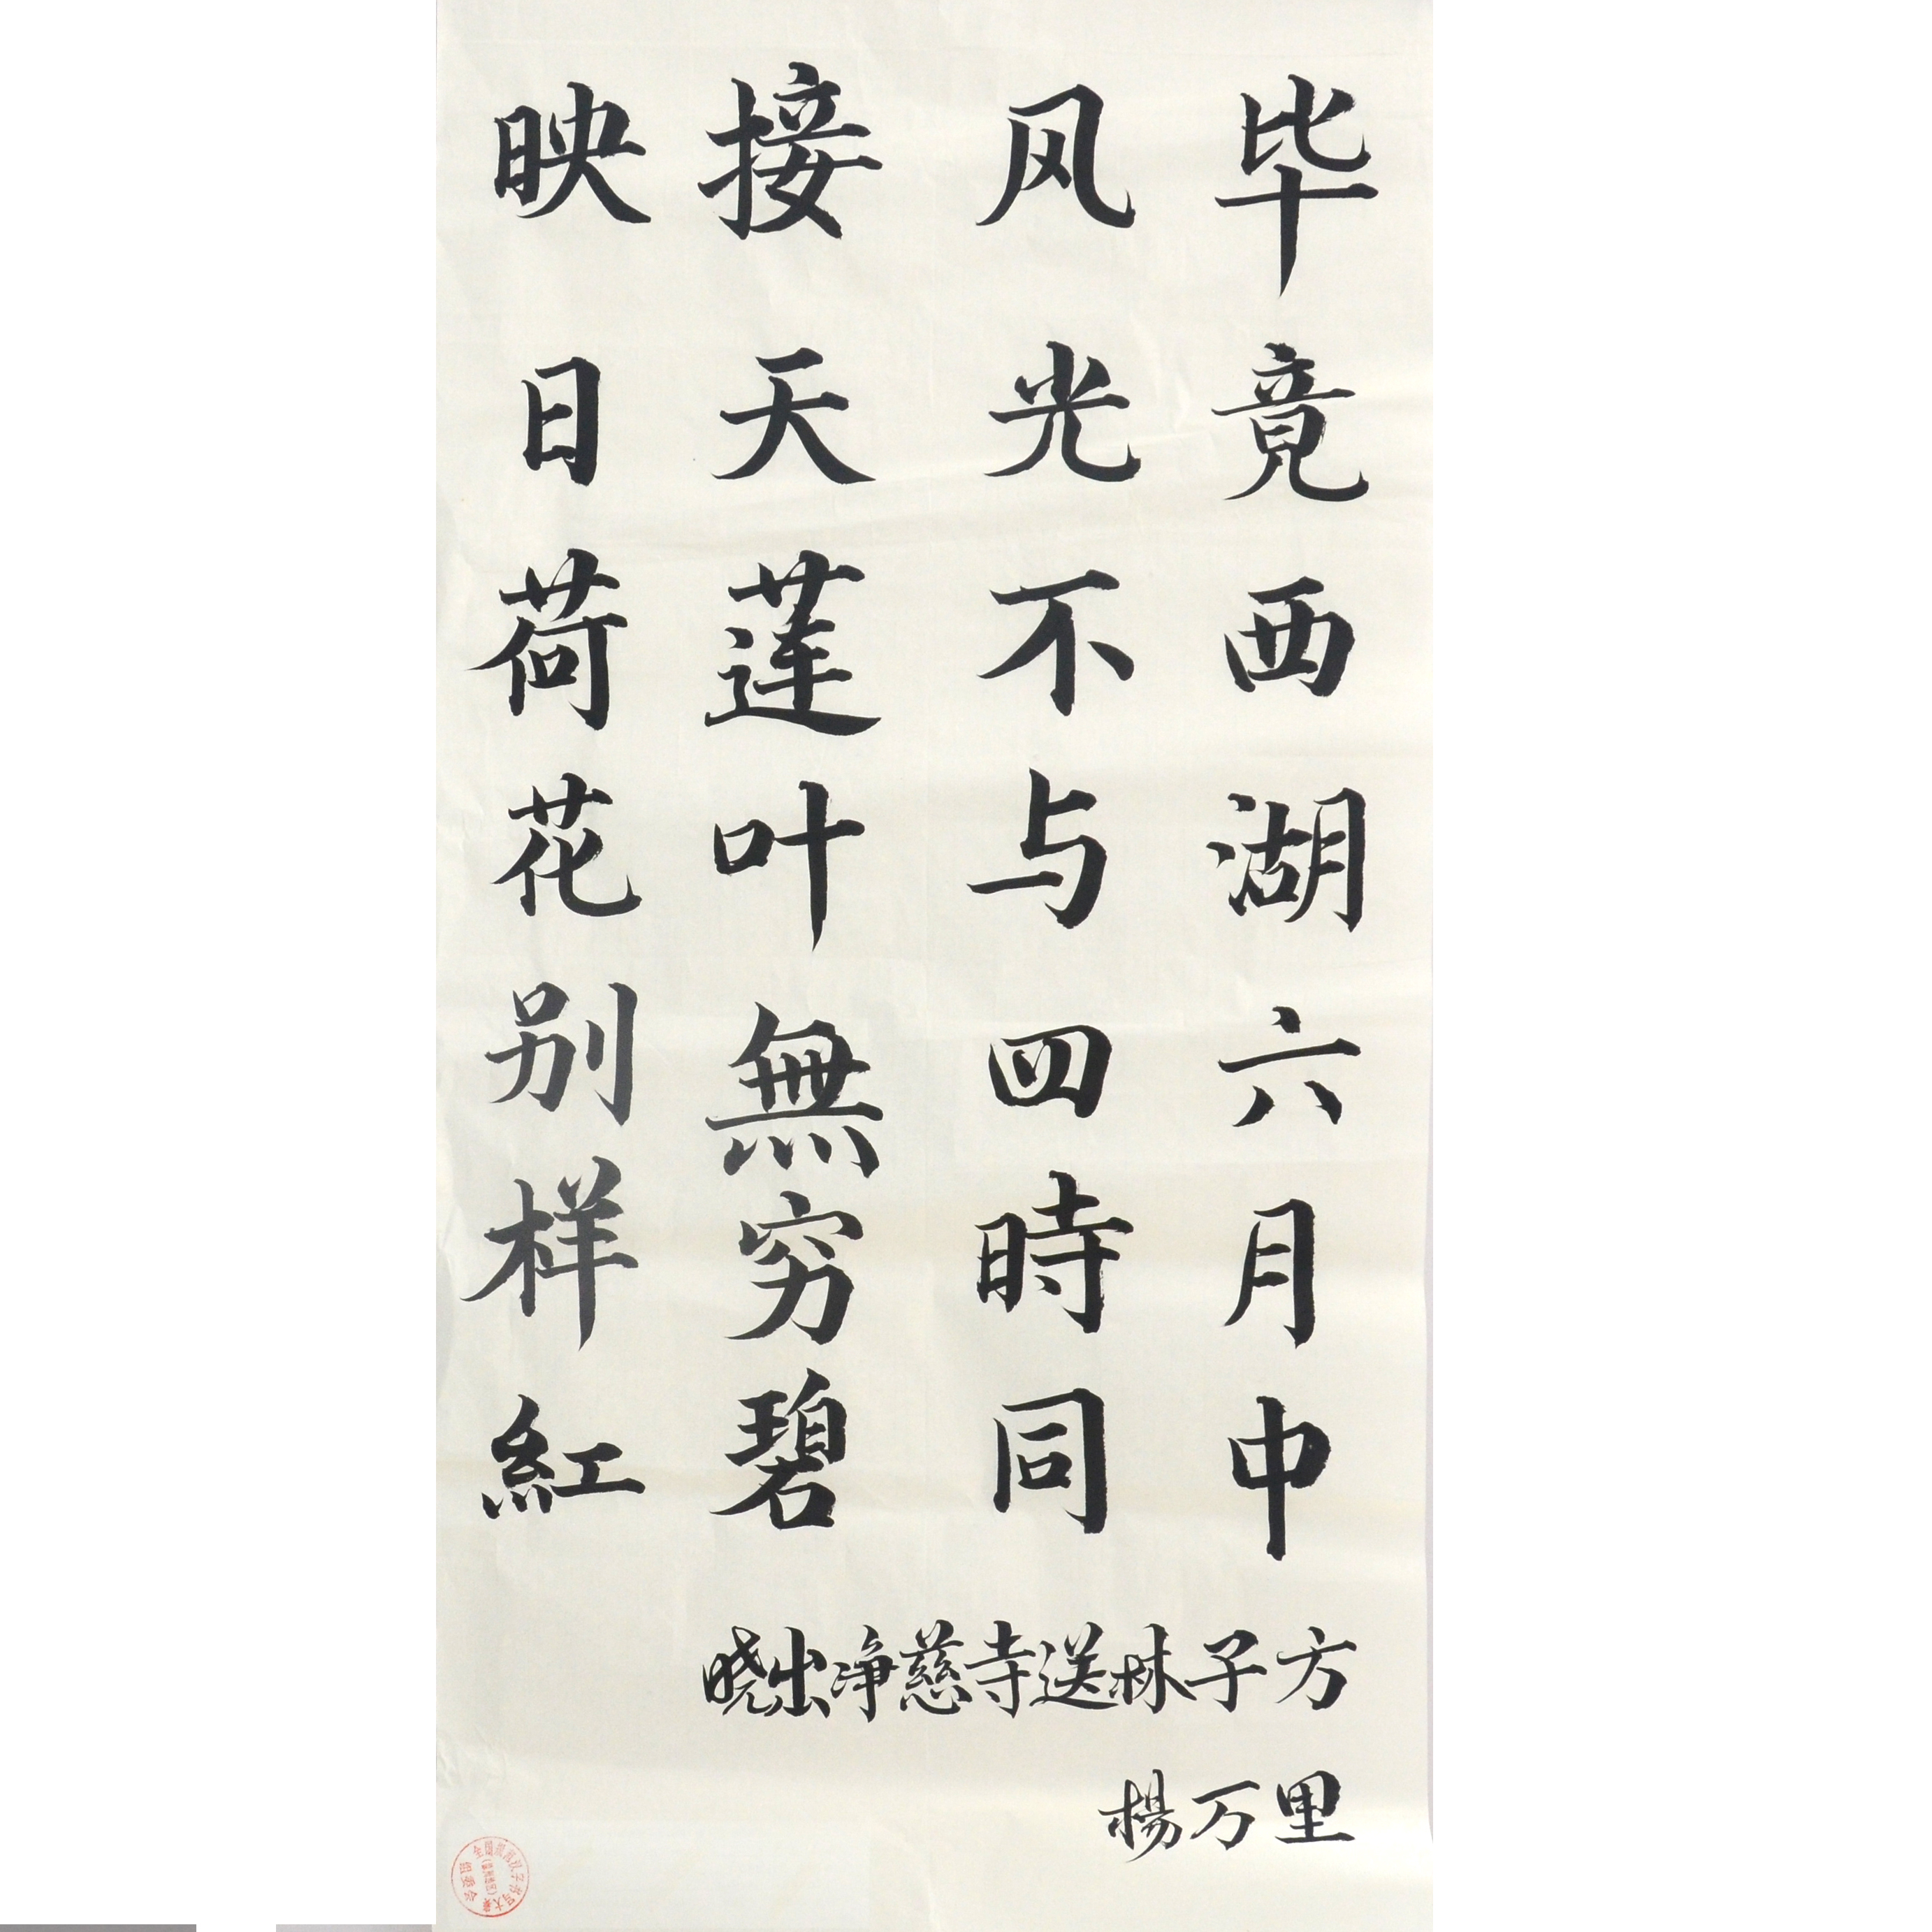 毕竟西湖六月中
风光不与四時同
接天莲叶無穷碧
映日荷花别样紅
晓出净慈寺送林子方
楊万里